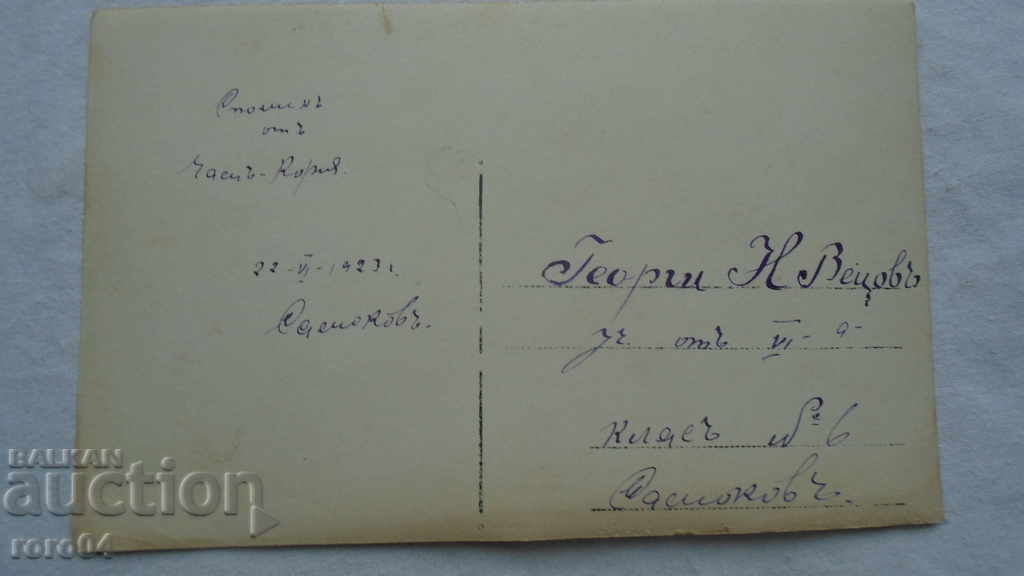 Споменъ
отъ
Чамъ-Кория.
22-VI-1923 г.
Самоковъ.
Георги Н Вецовъ
Уч отъ VI-а-
класъ № 6
Самоковъ.
BALKAN
auction
roro04